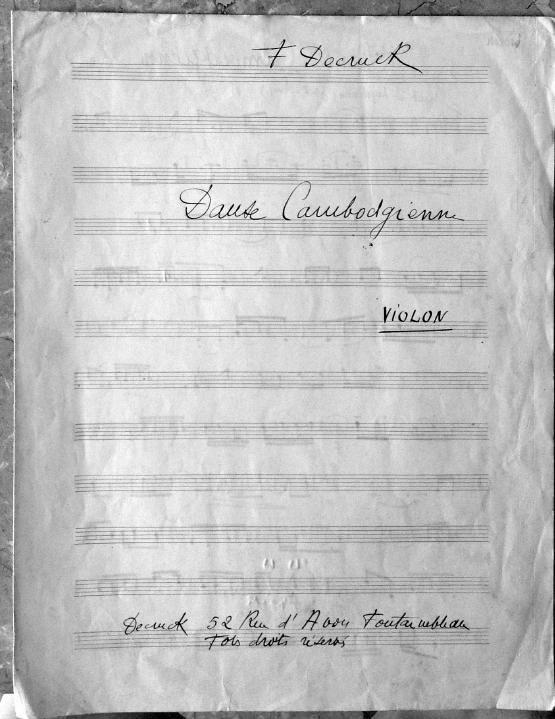 F Decruck
Danse Cambodgienne
VIOLON
Decruck 52 Rue d'Avon Fontainebleau
Tous droits réservés